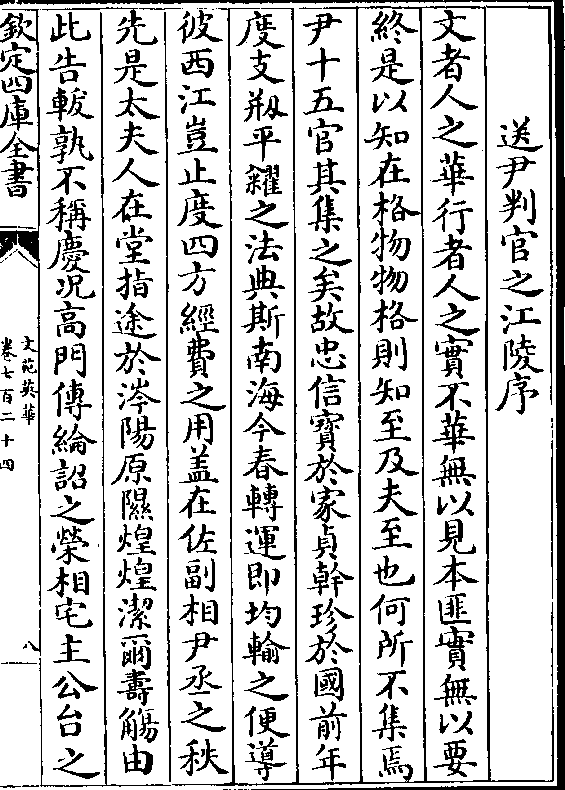 送尹判官之江陵序
文者人之華行者人之實不華無以見本匪實無以要
終是以知在格物物格則知至及夫至也何所不集焉
尹十五官其集之矣故忠信寶於家貞幹珍於國前年
度支剏平糴之法典斯南海今春轉運即均輸之便導
彼西江豈止度四方經費之用盖在佐副相尹丞之秩
先是太夫人在堂指途於涔陽原隰煌煌潔爾壽觴由
此告轅孰不稱慶况高門傳綸詔之榮相宅主公台之
欽定四庫全書
文苑英華
卷七百二十四
八